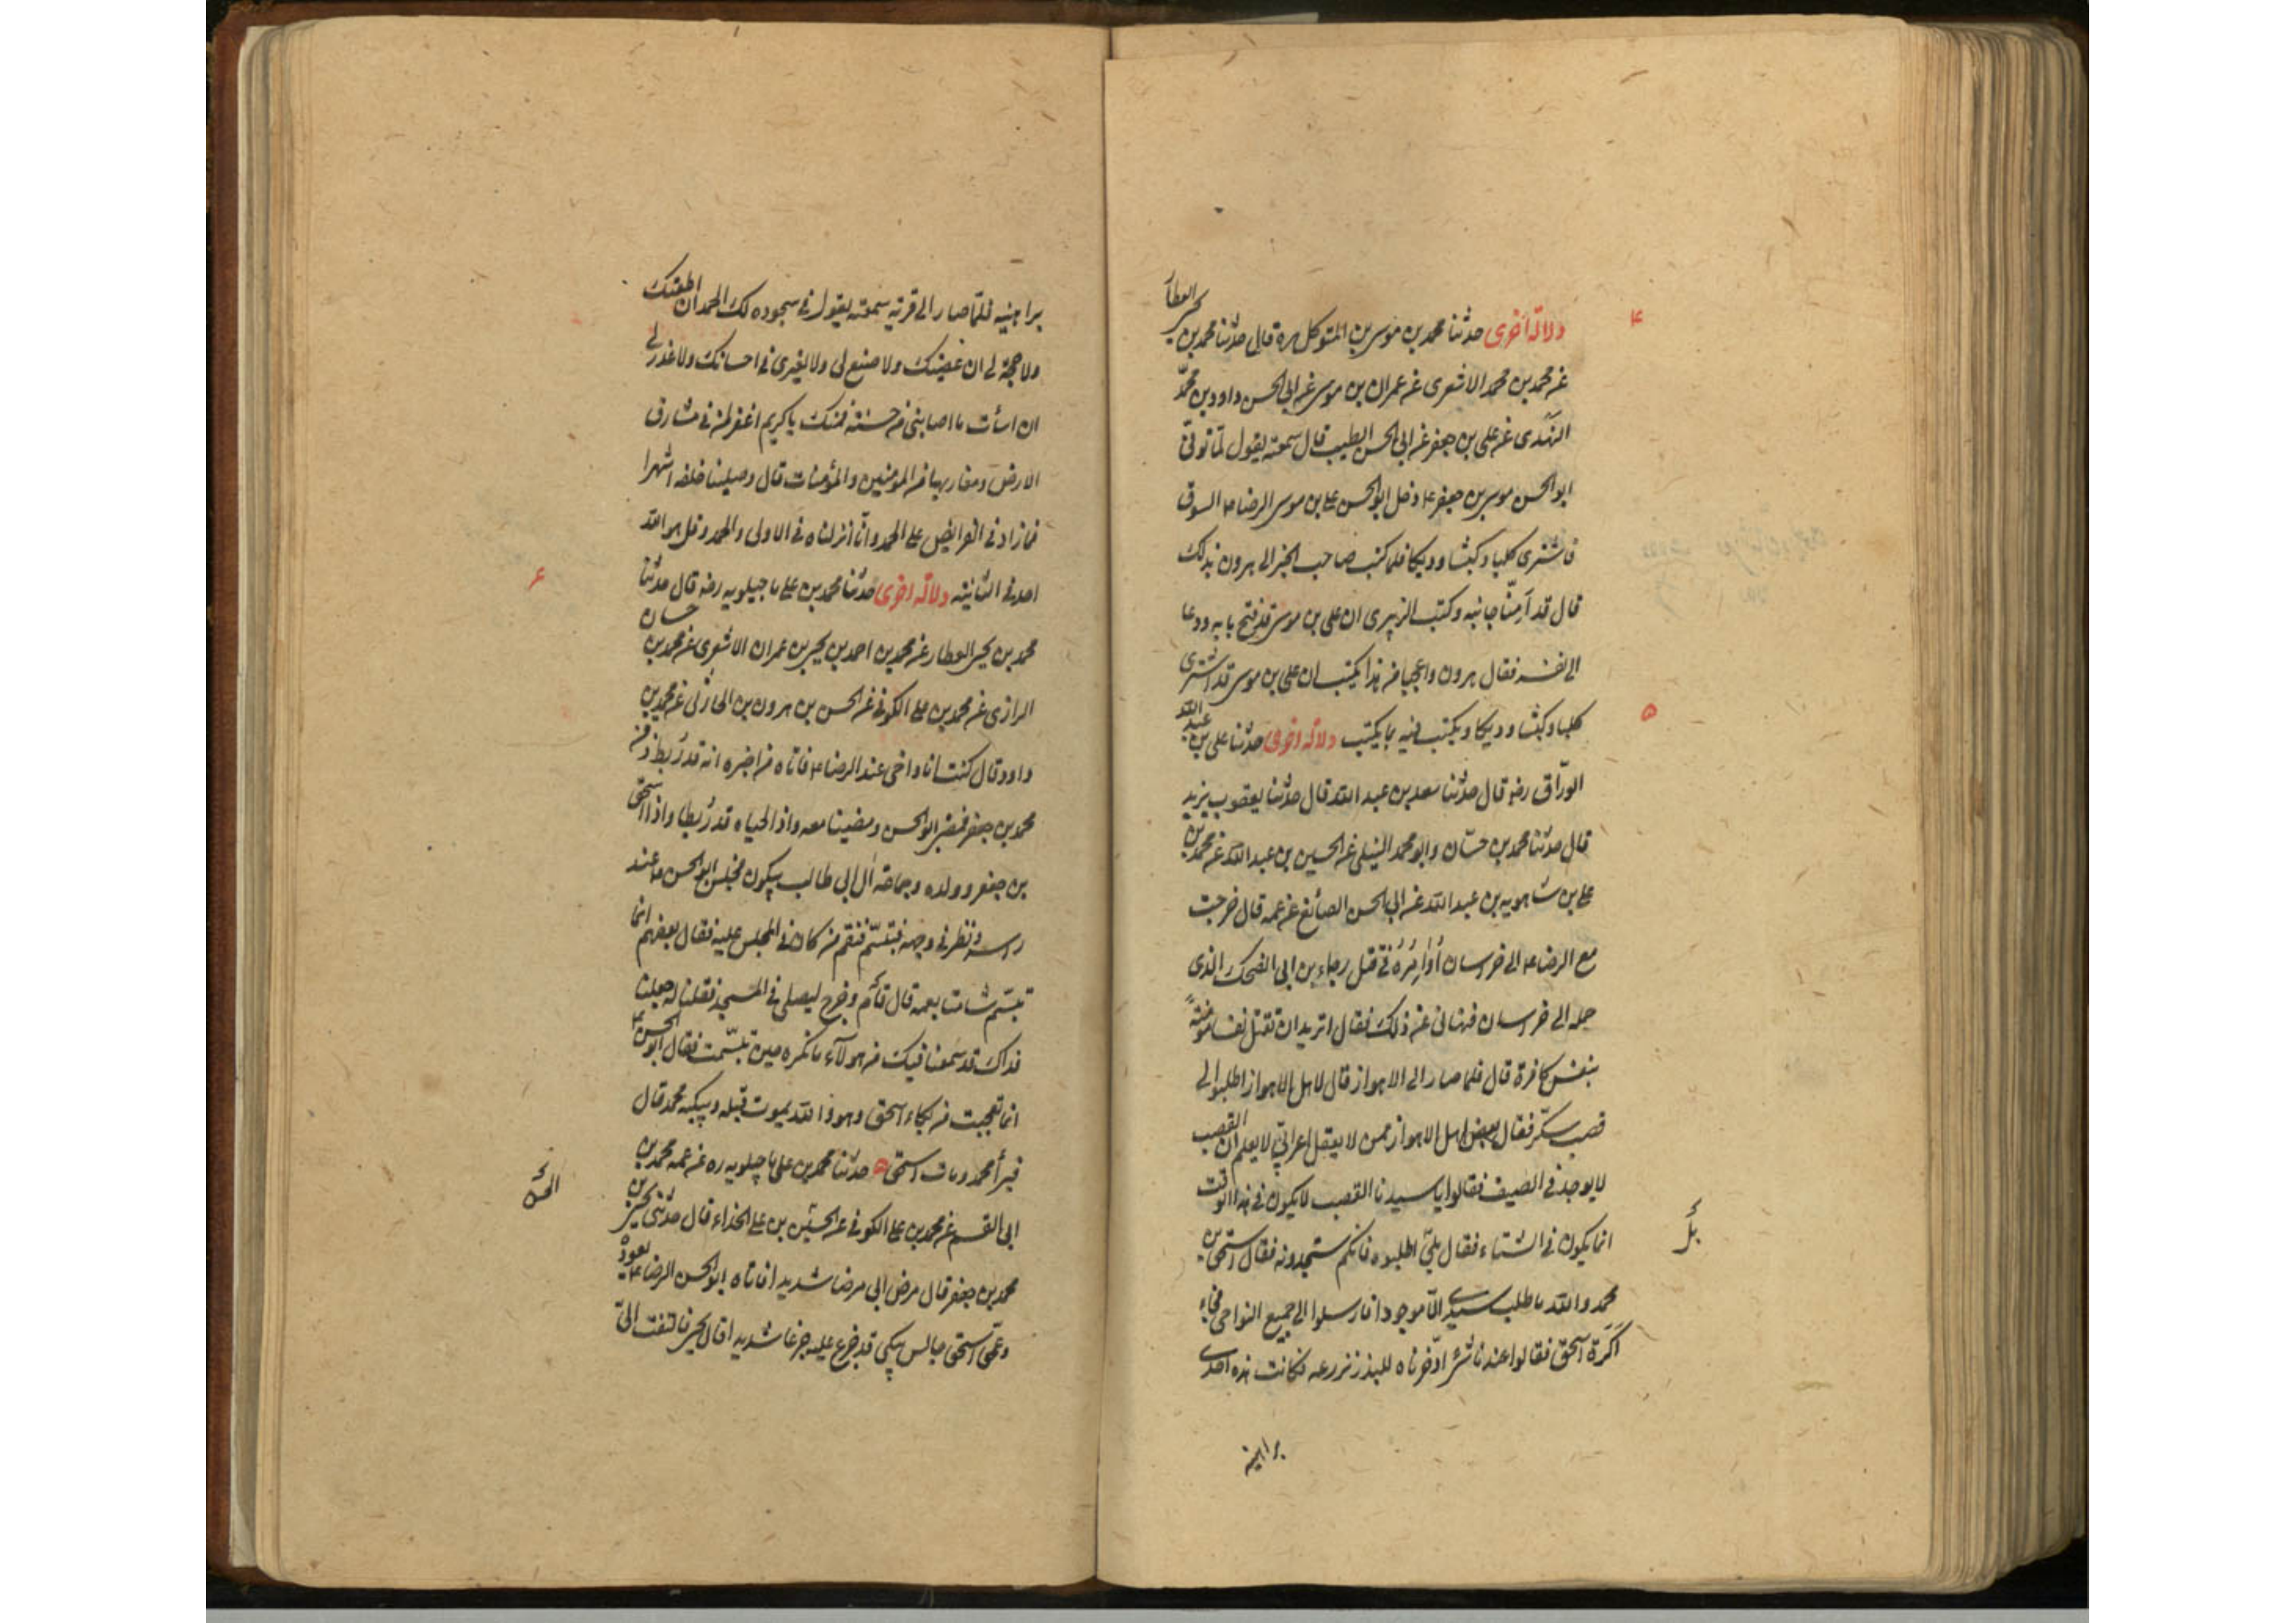 ۴
دلالة أخرى حدثنا محمد بن موسى بن المتوكل ره قال حدثنا محمد بن يحيى العطار
عن محمد بن محمد الاشعرى عن عمران بن موسى عن ابى الحسن داود بن محمد
النهدى عن على بن جعفر عن ابى الحسن الطبيب قال سمعته يقول لما توفى
ابو الحسن موسى بن جعفر ع دخل ابو الحسن على بن موسى الرضا ع السوق
فاشترى كلبا وكبشا وديكا فلما كتب صاحب الخبر الى هرون بذلك
قال قد آمنّا جانبه وكتب الزبيرى ان على بن موسى قد فتح بابه ودعا
الى نفسه فقال هرون واعجبا من هذا يكتب ان على بن موسى قد اشترى
كلبا وكبشا وديكا ويكتب فيه بما يكتب دلالة اخرى حدثنا على بن عبد الله
۵
الورّاق رضه قال حدثنا سعد بن عبد الله قال حدثنا يعقوب بن يزيد
قال حدثنا محمد بن حسّان وابو محمد النيلى عن الحسين بن عبد الله عن محمد بن
على بن شاهويه بن عبد الله عن ابى الحسن الصائغ عن عمه قال خرجت
مع الرضا ع الى خراسان أُوَامِرُهُ فى قتل رجاء بن ابى الضحك الذى
حمله الى خراسان فنهانى عن ذلك فقال اتريد ان تقتل نفسا مؤمنةً
بنفس كافرة قال فلما صار الى الاهواز قال لاهل الاهواز اطلبوا لى
قصب سكّر فقال بعض اهل الاهواز ممن لا يعقل اعرابىّ لا يعلم ان القصب
لا يوجد فى الصيف فقالوا يا سيدنا القصب لا يكون فى هذا الوقت
انما يكون فى الشتاء فقال بلى اطلبوه فانكم ستجدونه فقال اسحق بن
بل
محمد والله ما طلب سيدى الّا موجودا فارسلوا الى جميع النواحى فجاء
اكَرَة اسحق فقالوا عندنا شئ ادّخرناه للبذر نزرعه فكانت هذه احدى
براهينه
براهينه فلمّا صار الى قرية سمعته يقول فى سجوده لك الحمد ان اطعتك
ولا حجة لى ان عصيتك ولا صنع لى ولا لغيرى فى احسانك ولا عذر لى
ان اسأت ما اصابنى من حسنة فمنك يا كريم اغفر لمن فى مشارق
الارض ومغاربها من المؤمنين والمؤمنات قال وصلينا خلفه اشهرا
فما زاد فى الفرائض على الحمد وانّا انزلناه فى الاولى والحمد وقل هو الله
احد فى الثانية دلالة اخرى حدثنا محمد بن على ماجيلويه رضه قال حدثنا
۶
محمد بن يحيى العطار عن محمد بن احمد بن يحيى بن عمران الاشعرى عن محمد بن حسان
الرازى عن محمد بن على الكوفى عن الحسن بن هرون بن الحارثى عن محمد بن
داود قال كنت انا واخى عند الرضا ع فاتاه من اخبره انه قد رُبط ذقن
محمد بن جعفر فمضى ابو الحسن ومضينا معه واذا لحياه قد رُبطا واذا اسحق
بن جعفر وولده وجماعة آل ابى طالب يبكون فجلس ابو الحسن ع عند
راسه ونظر فى وجهه فتبسّم فنقم من كان فى المجلس عليه فقال بعضهم انما
تبسّم شامتا بعمه قال قام وخرج ليصلى فى المسجد فقلنا له جعلنا
فداك قد سمعنا فيك من هولآء ما نكره حين تبسّمت فقال ابو الحسن ع
انما تعجبت من بكاء اسحق وهو والله يموت قبله ويبكيه محمد قال
فبرأ محمد ومات اسحق حدثنا محمد بن على ماجيلويه ره عن عمه محمد بن
ابى القسم عن محمد بن على الكوفى عن الحسين بن على الحذاء قال حدثنى يحيى بن
الحسن
محمد بن جعفر قال مرض ابى مرضا شديدا فاتاه ابو الحسن الرضا ع يعوده
وعمّى اسحق جالس يبكى قد جزع عليه جزعا شديدا قال يحيى فالتفت الىّ